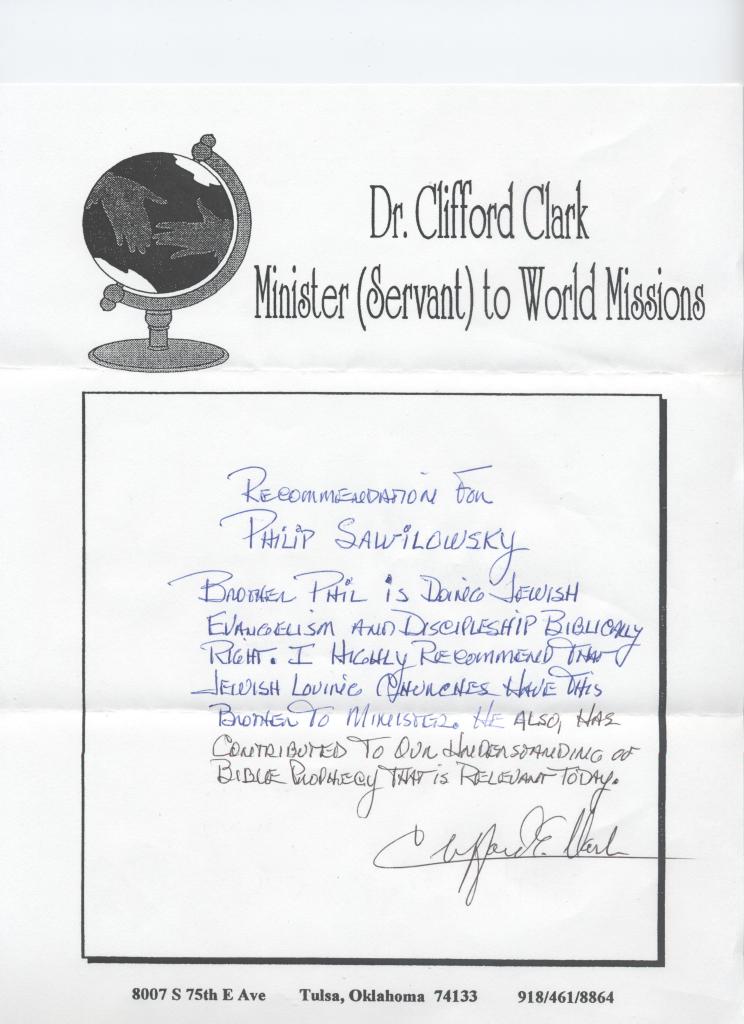 Dr. Clifford Clark
Minister (Servant) to World Missions
RECOMMENDATION FOR
PHILIP SAWILOWSKY
BROTHER PHIL IS DOING JEWISH
EVANGELISM AND DISCIPLESHIP BIBLICALLY
RIGHT. I HIGHLY RECOMMEND THAT
JEWISH LOVING CHURCHES HAVE THIS
BROTHER TO MINISTER. HE ALSO, HAS
CONTRIBUTED TO OUR UNDERSTANDING OF
BIBLE PROPHECY THAT IS RELEVANT TODAY.
Clifford E. Clark
8007 S 75th E Ave Tulsa, Oklahoma 74133 918/461/8864